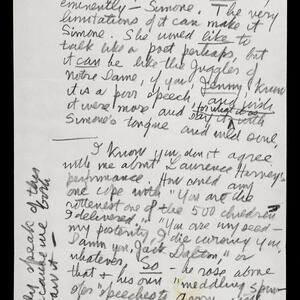 eminently — Simone. The very
limitations of it can make it
Simone. She would like to
talk like a poet perhaps, but
it can be like the Juggler of
Notre Dame, if you Jenny know
it is a poor speech, and wish
it were more and say it with
Simone's tongue and soul.
I know you don't agree
with me about Laurence Harvey's
performance. How could any
one cope with "You are the
rottenest one of the 500 children
I delivered," "You are my seed —
my posterity, I die cursing you
Damn you, Jack Dalton," or
whatever. So — he rose above
that & his own "meddling
speeches
speak of this